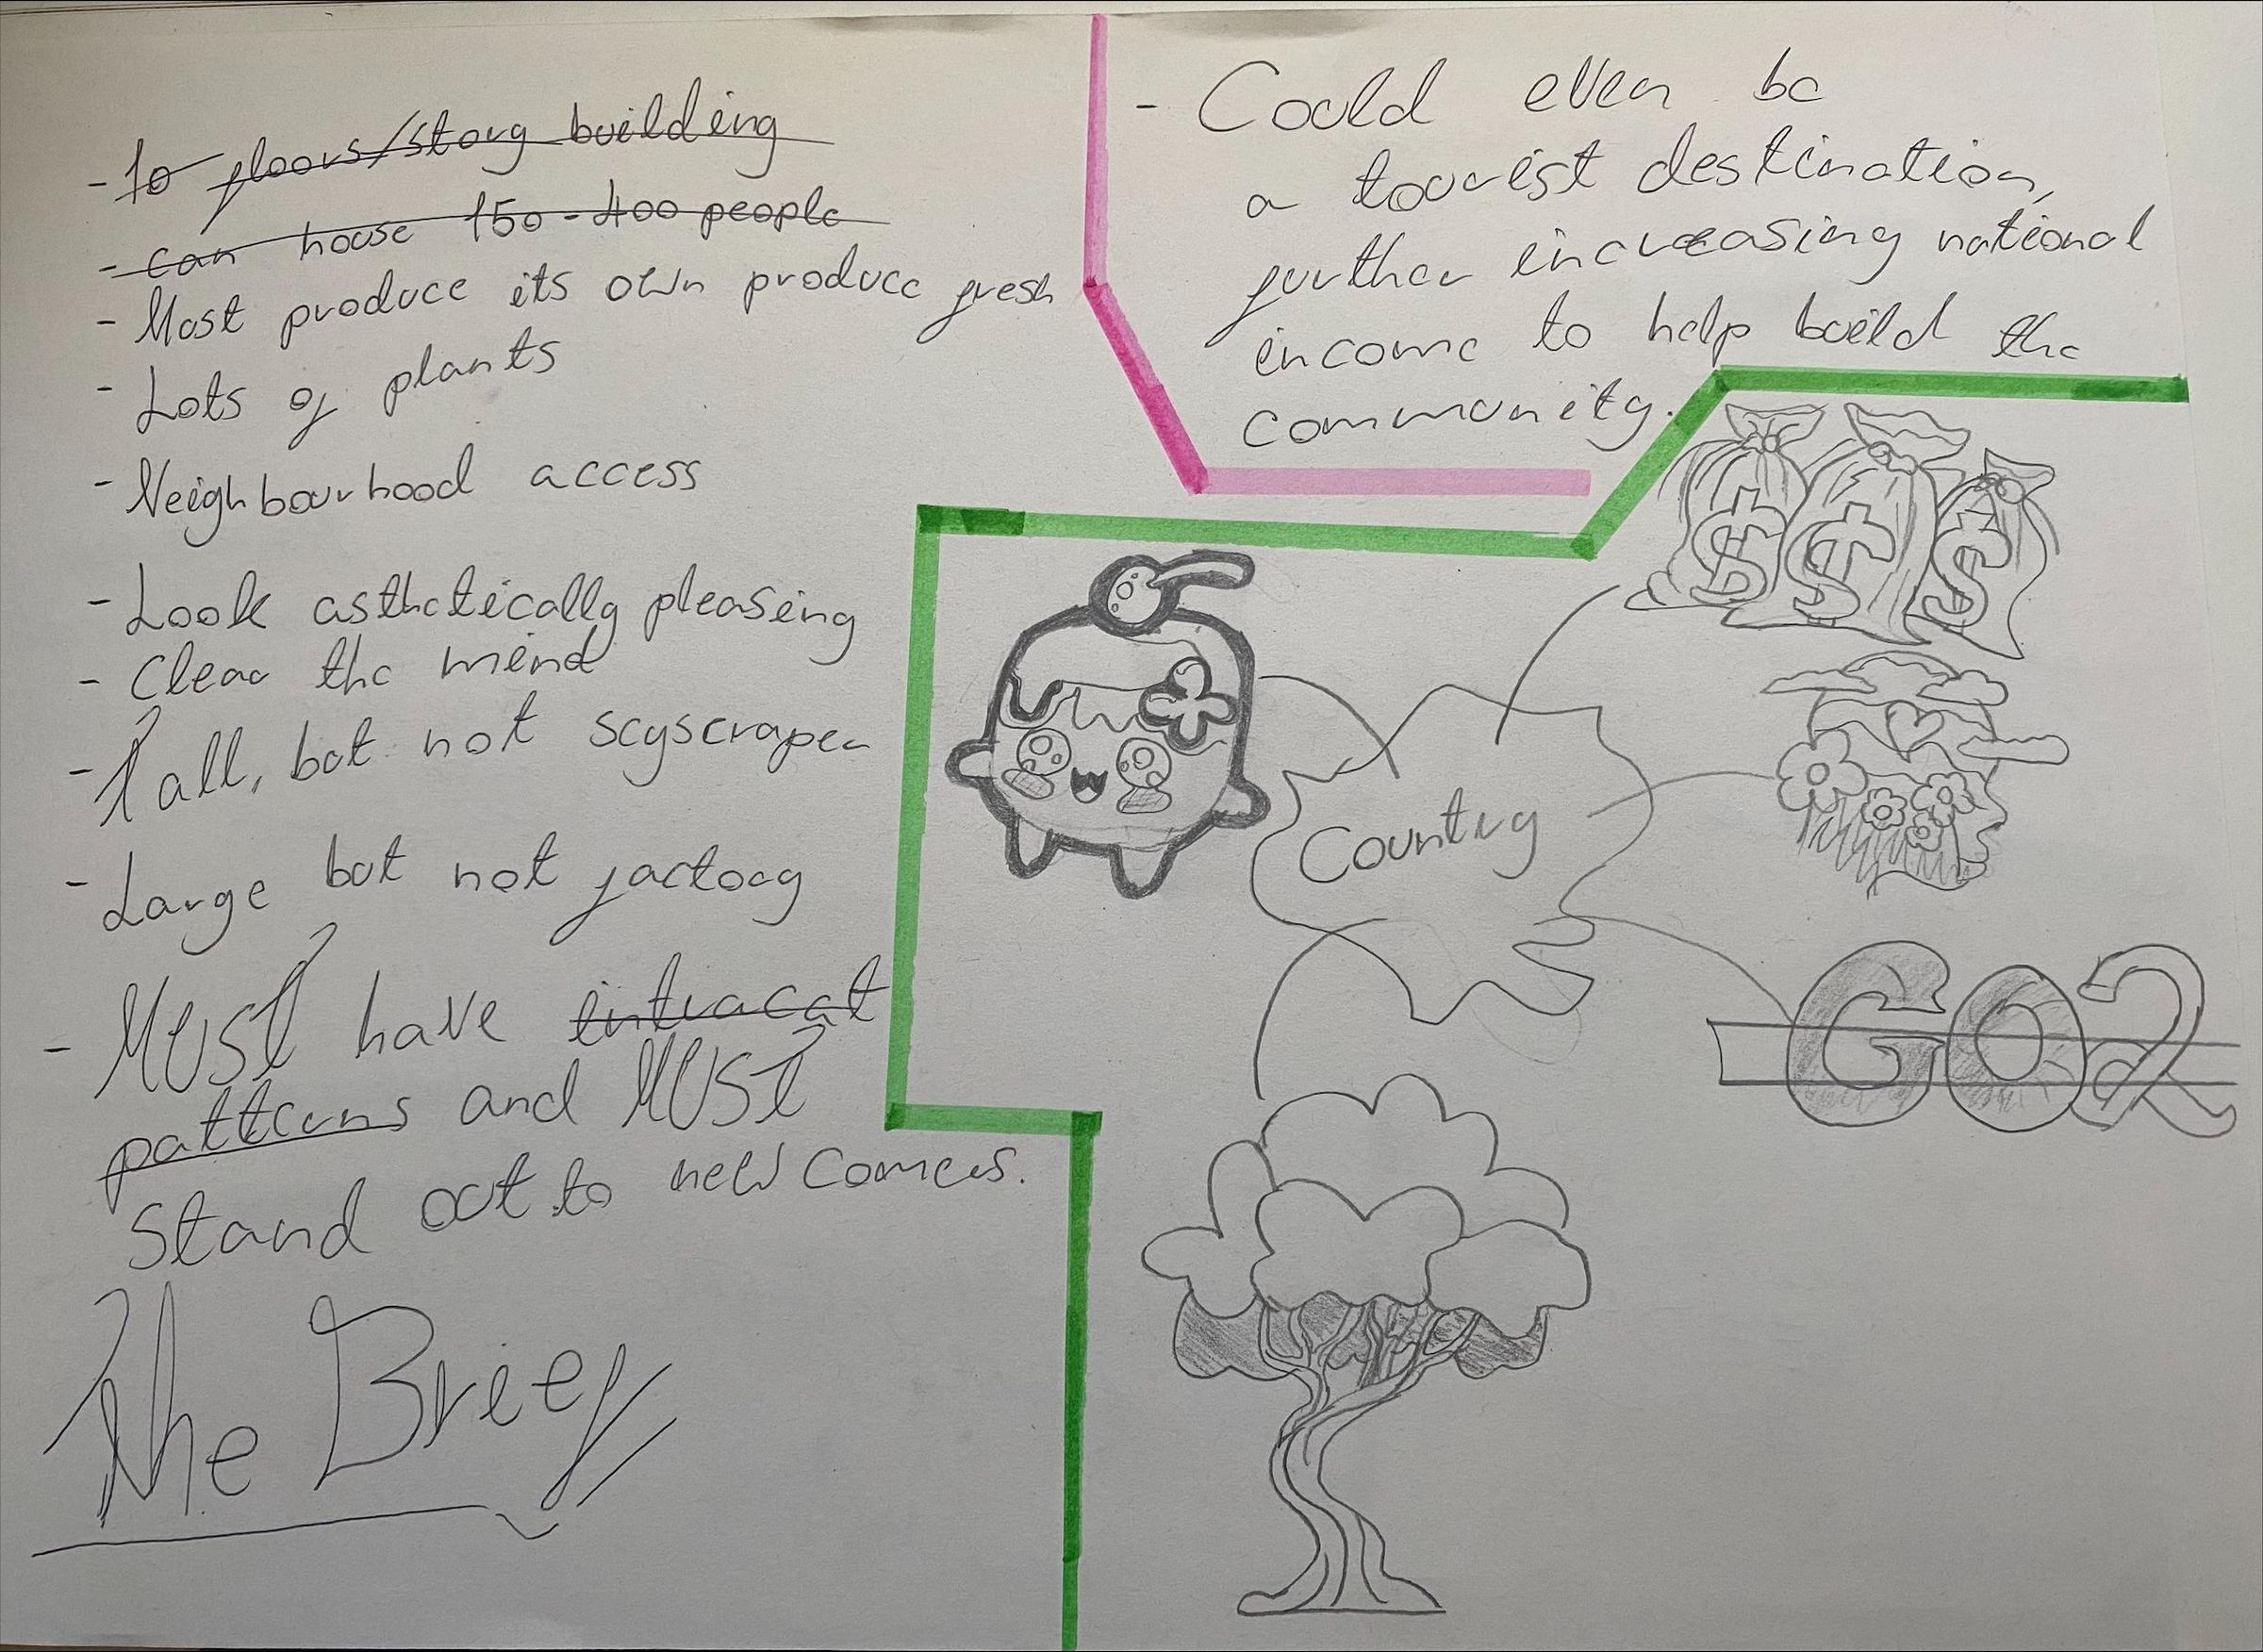 - 10 floors/story building
- can house 150-400 people
- Most produce its own produce fresh
- Lots of plants
- Neighbourhood access
- Look asthetically pleasing
- Clear the mind
- Tall, but not scyscraper
- Large but not factory
- MUST have intracat
patterns and MUST
Stand out to new comers.
The Brief
- Could even be
a tourist destination,
further increasing national
income to help build the
community.
$ $ $
Country
GO2